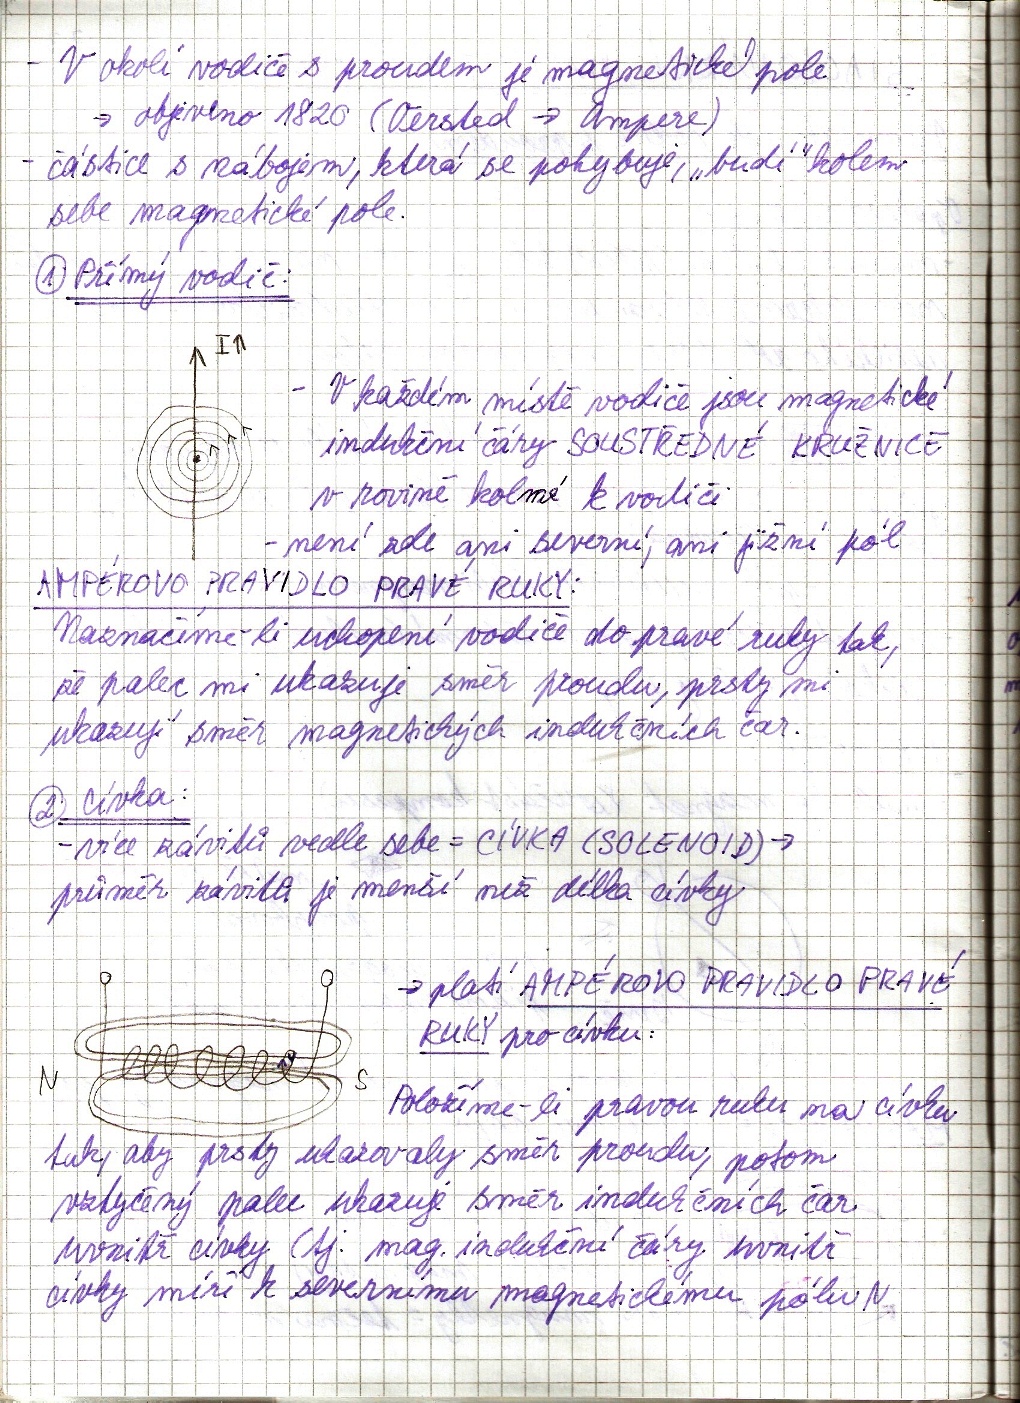 - V okolí vodiče s proudem je magnetické pole
→ objeveno 1820 (Oersted → Ampere)
- částice s nábojem, která se pohybuje, „budí“ kolem
sebe magnetické pole.
① Přímý vodič:
I↑
- V každém místě vodiče jsou magnetické
indukční čáry SOUSTŘEDNÉ KRUŽNICE
v rovině kolmé k vodiči
- není zde ani severní, ani jižní pól
AMPÉROVO PRAVIDLO PRAVÉ RUKY:
Naznačíme-li uchopení vodiče do pravé ruky tak,
že palec mi ukazuje směr proudu, prsty mi
ukazují směr magnetických indukčních čar.
② Cívka:
- více závitů vedle sebe = CÍVKA (SOLENOID) →
průměr závitů je menší než délka cívky
→ platí AMPÉROVO PRAVIDLO PRAVÉ
RUKY pro cívku:
N S
Položíme-li pravou ruku na cívku
tak, aby prsty ukazovaly směr proudu, potom
vztyčený palec ukazuje směr indukčních čar
uvnitř cívky (tj. mag. indukční čáry uvnitř
cívky míří k severnímu magnetickému pólu N